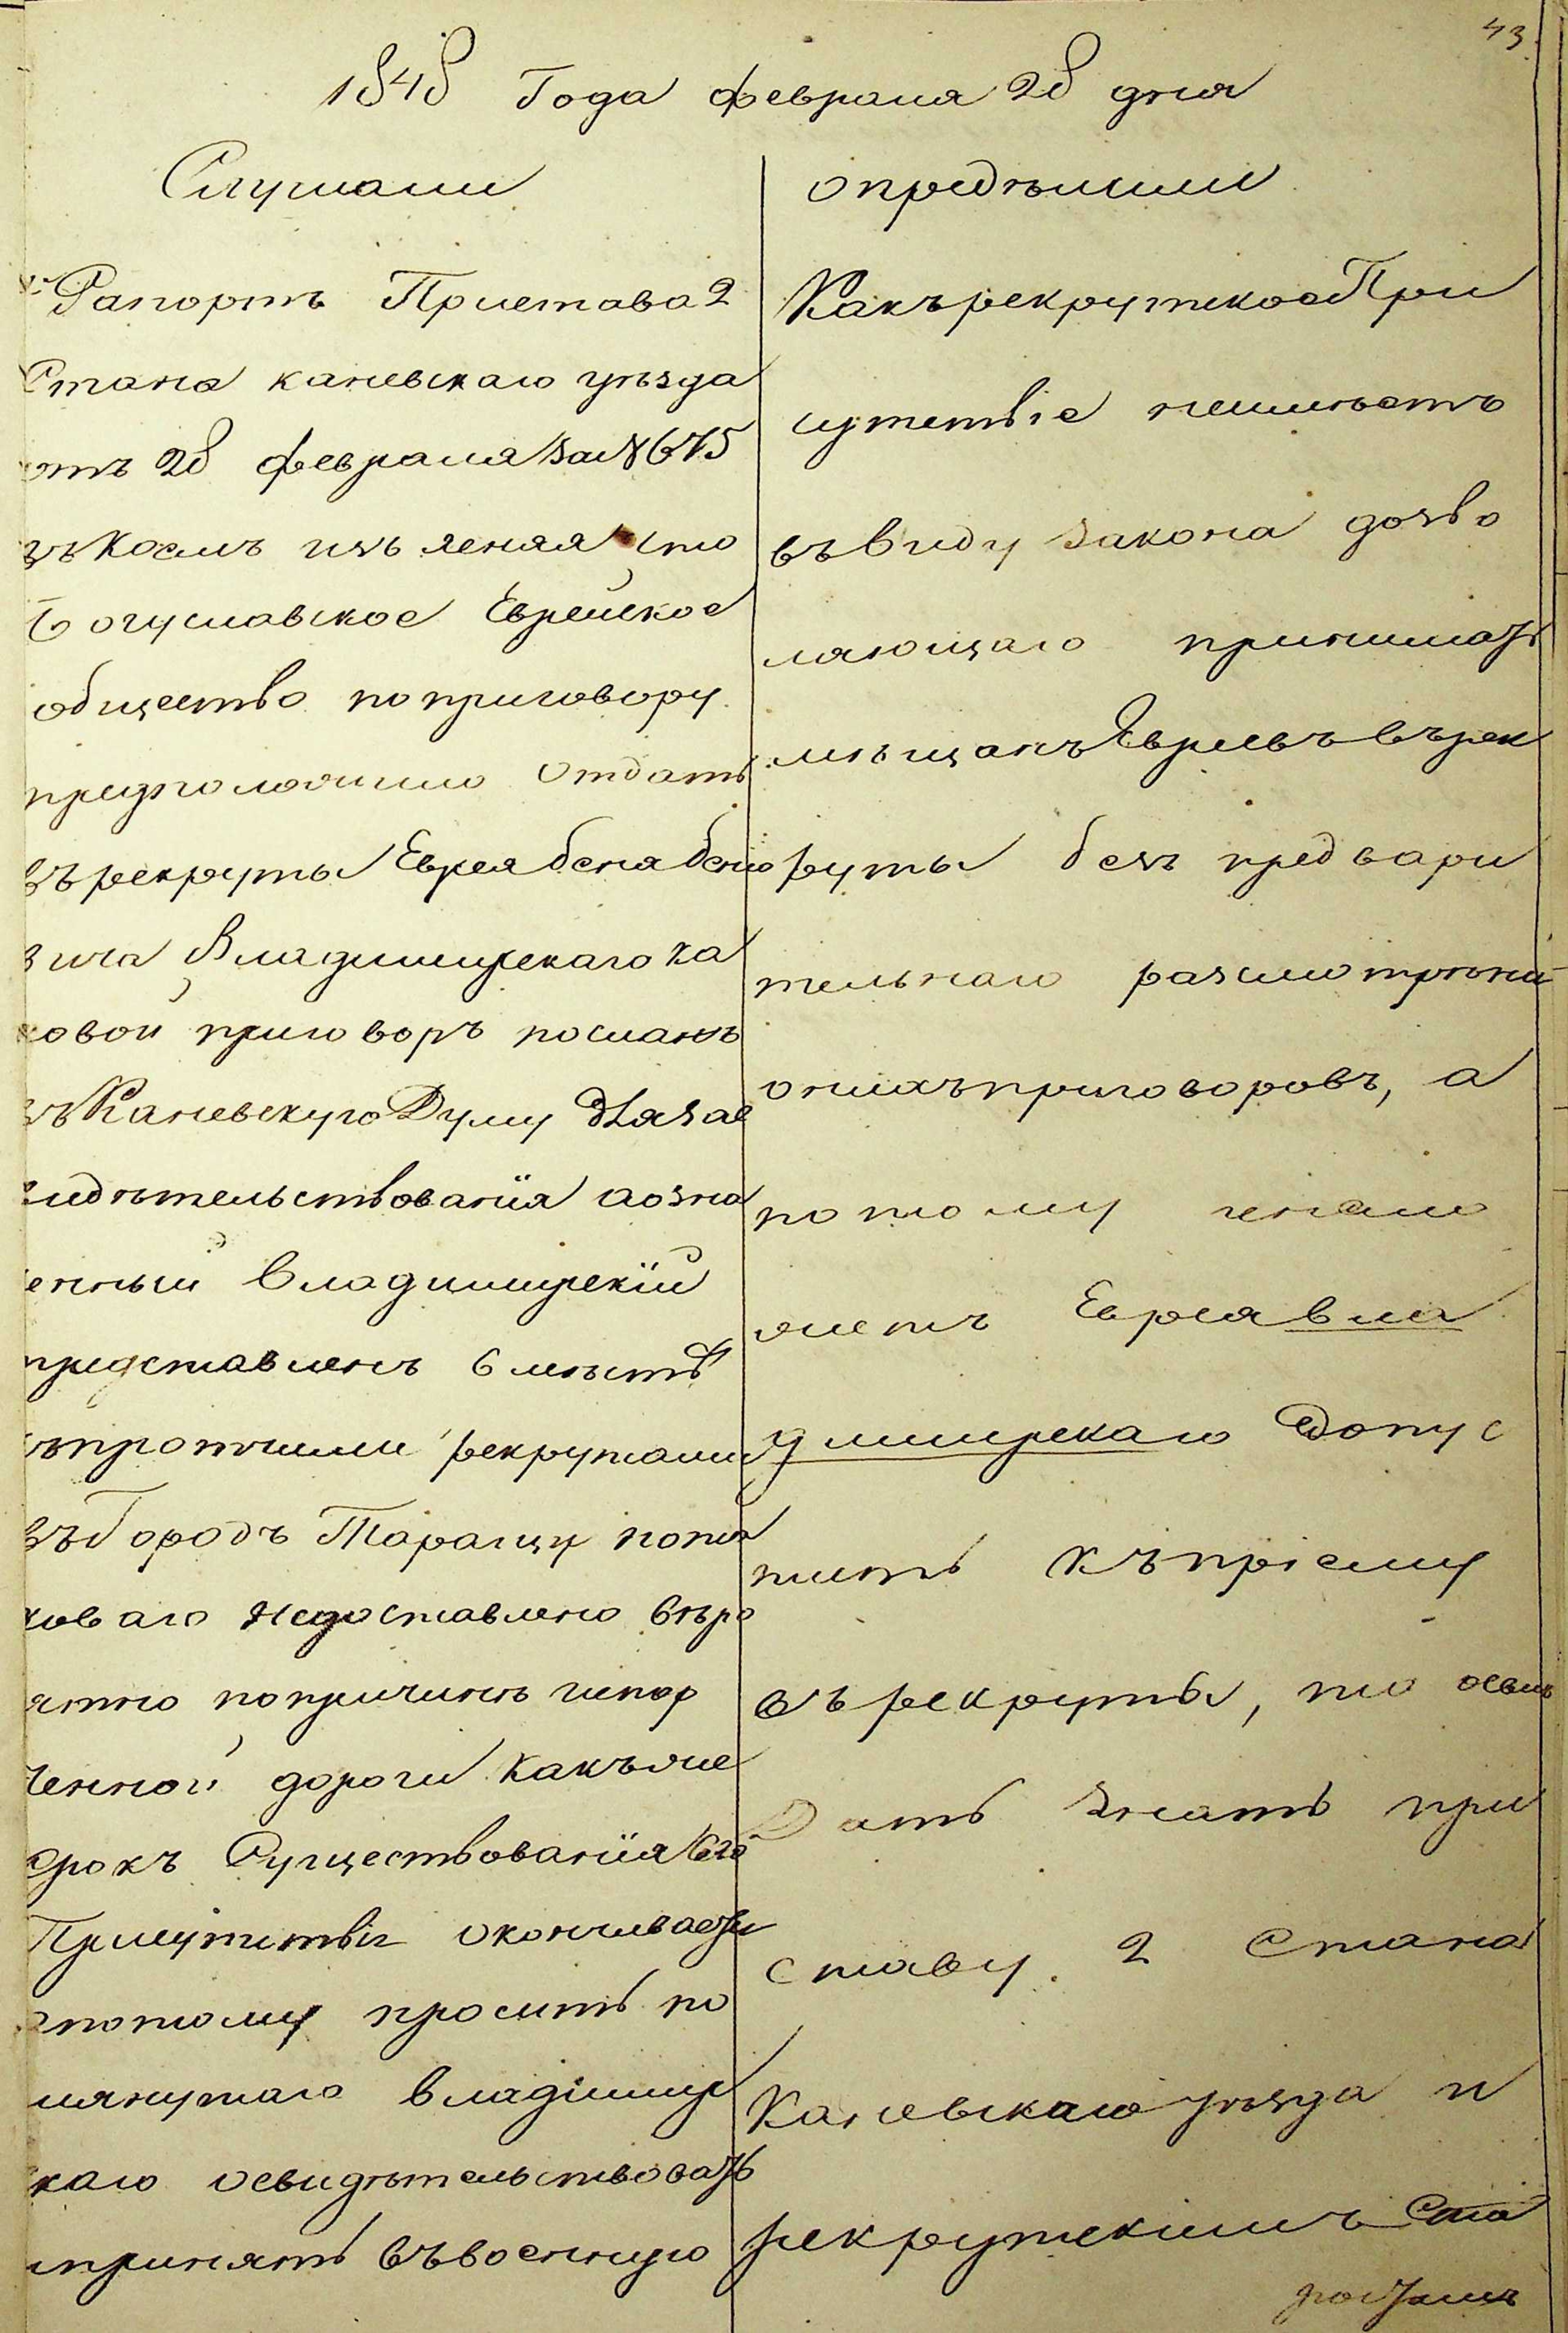 43.
1848 Года февраля 28 дня
Слушали
Рапортъ Пристава 2
Стана каневскаго уѣзда
отъ 28 февраля за № 675
въ коемъ изъясняя что
Богуславское Еврейское
общество по приговору
предположило отдать
въ рекруты Еврея беня бено
вича Владимирскаго ка
ковой приговоръ посланъ
въ Каневскую Думу для зас
видѣтельствованія а озна
ченный Владимирскій
представленъ вмѣстѣ
съ прочими рекрутами
въ Городъ Таращу
коваго недоставлено вѣро
ятно по причинѣ испор
ченной дороги какъ же
срокъ Существованія Сего
Присутствія оканчивается
а потому проситъ по
мянутаго владимир
скаго освидѣтельствовать
и принять въ военную
опредѣлили
Какъ рекрутское При
сутствіе неимѣетъ
въ виду закона дозво
ляющаго принимать
мѣщанъ Евреевъ в рек
руты безъ предвари
тельнаго разсмотрѣнія
онихъ приговоровъ, а
потому немо
жетъ Еврея вла
димирскаго допус
тить къ пріему
въ рекруты, то осемъ
Дать знать при
ставу 2 Стана
Каневскаго уѣзда и
рекрутскимъ Ста
ростамъ